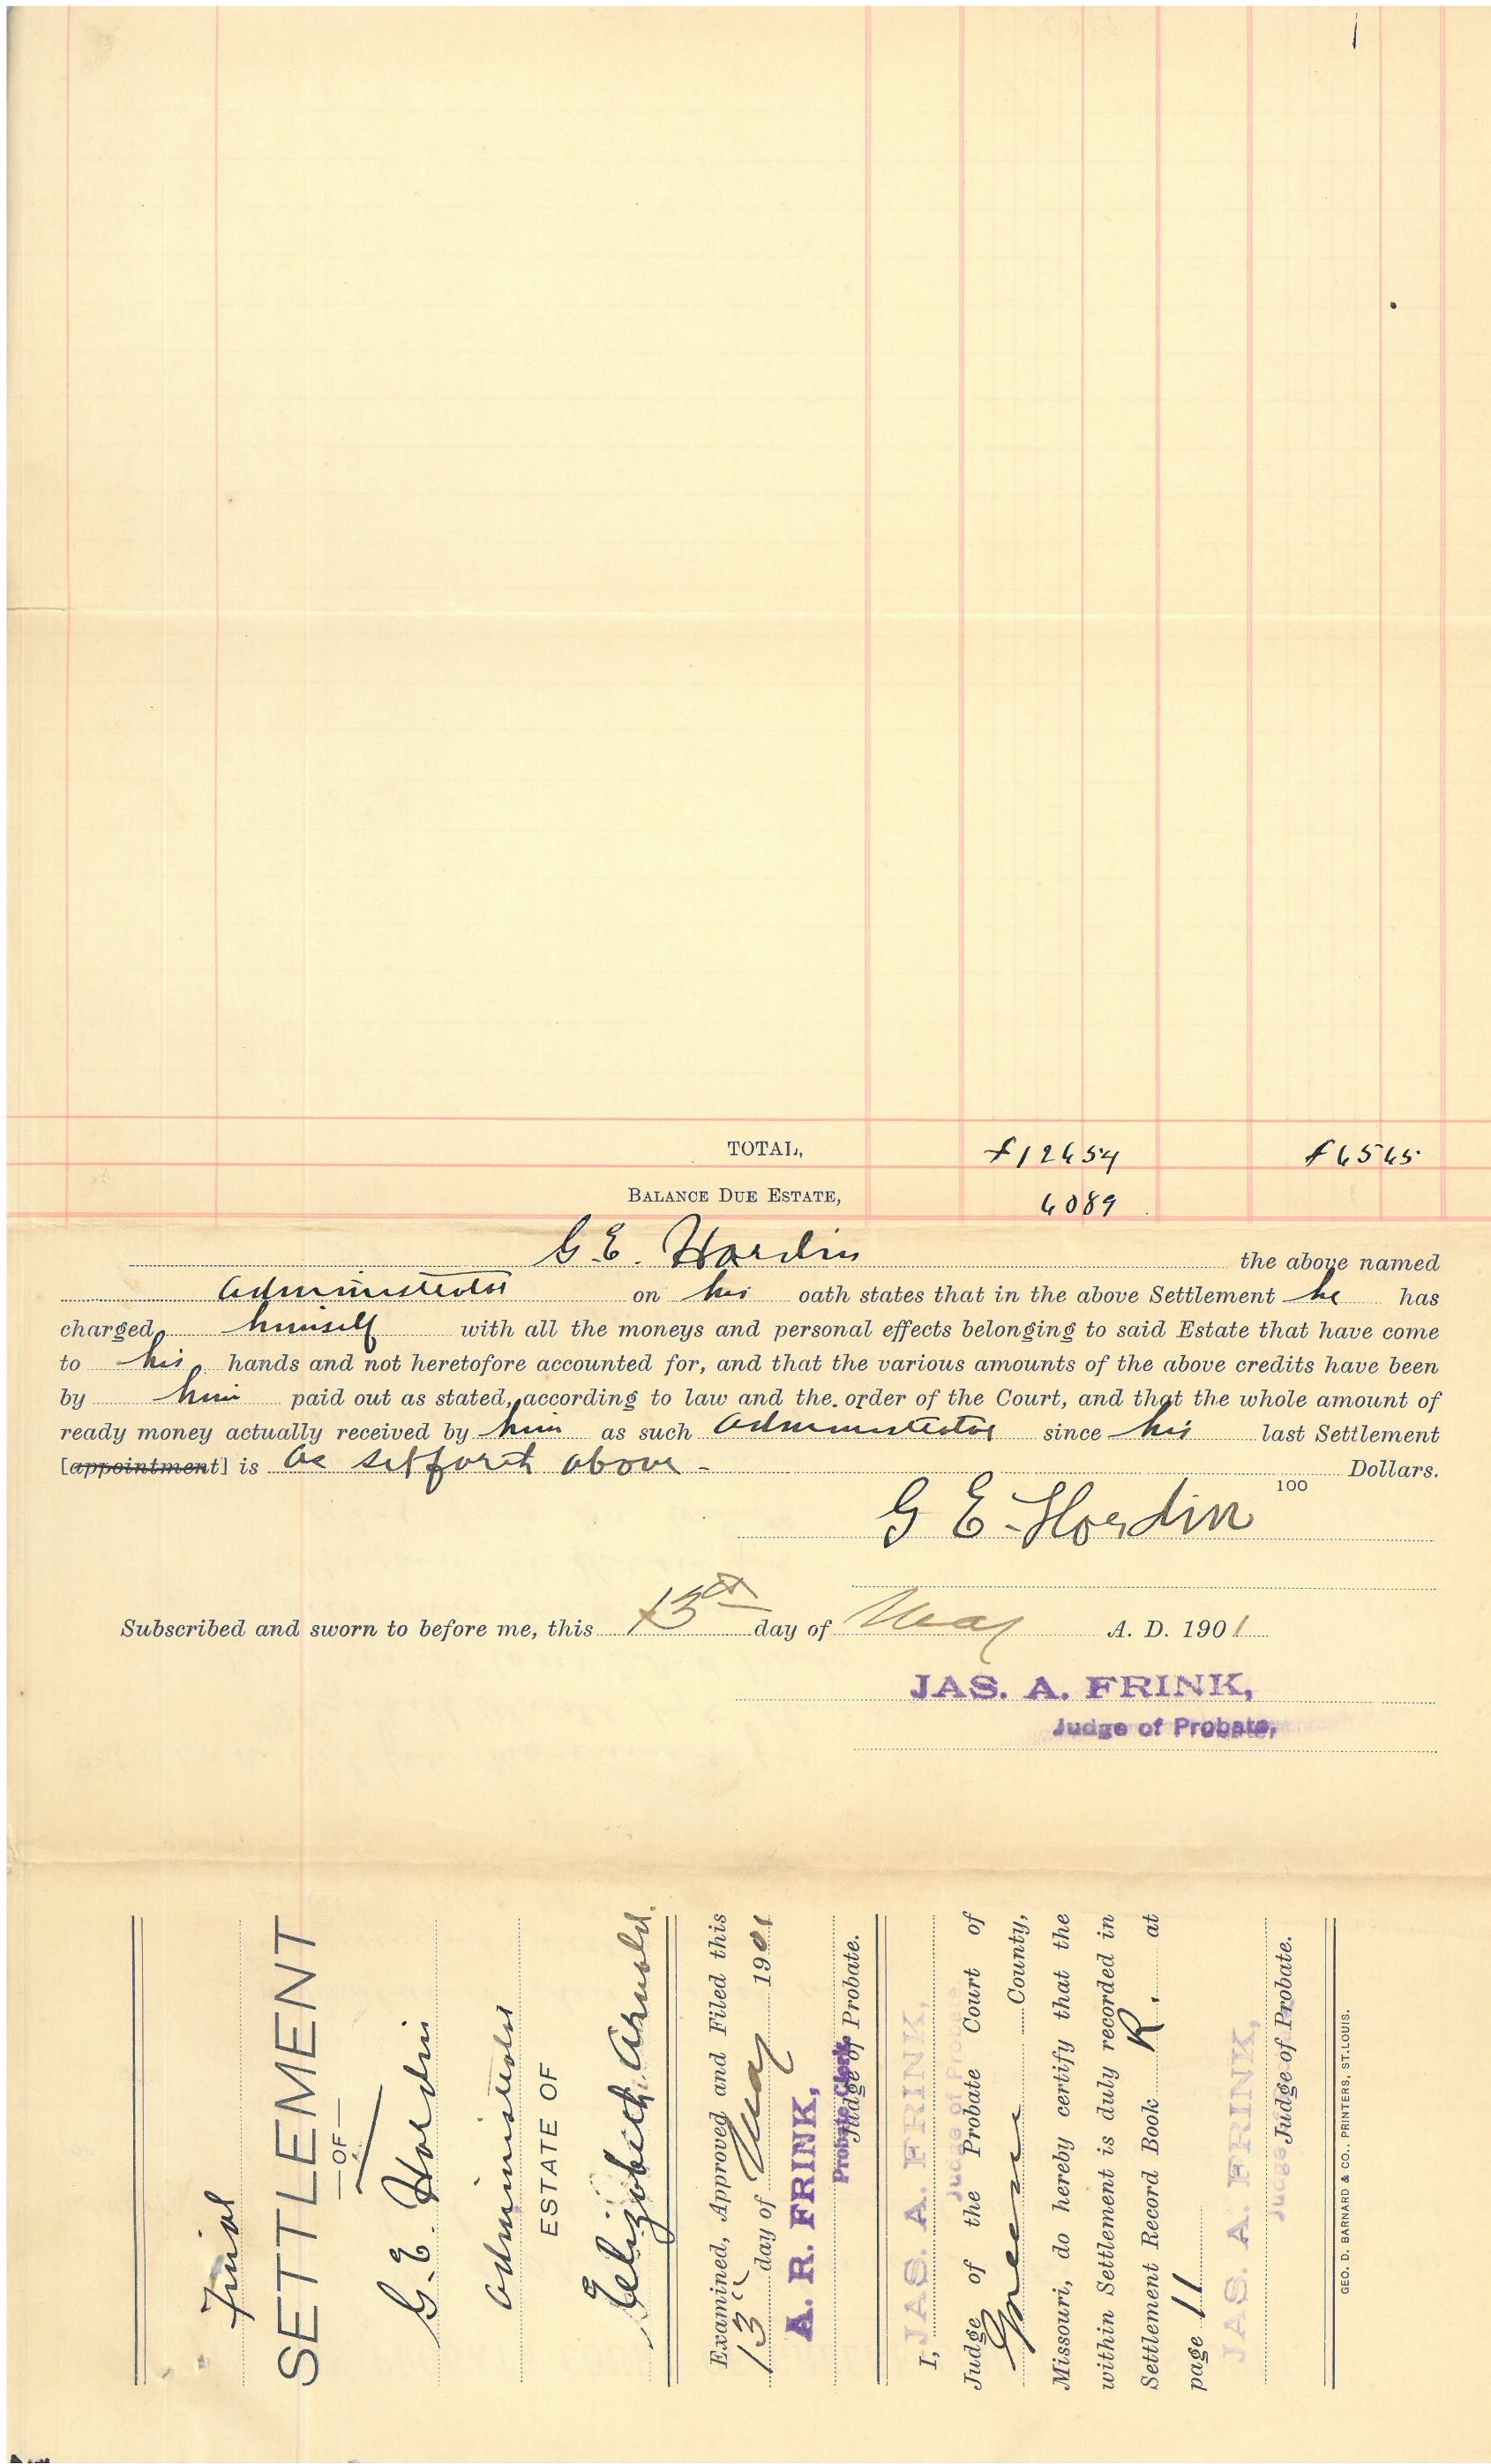 TOTAL, $12654 $6565
BALANCE DUE ESTATE, 6089
G. E. Hardin the above named
Administrator on his oath states that in the above Settlement he has
charged himself with all the moneys and personal effects belonging to said Estate that have come
to his hands and not heretofore accounted for, and that the various amounts of the above credits have been
by him paid out as stated, according to law and the order of the Court, and that the whole amount of
ready money actually received by him as such Administrator since his last Settlement
[appointment] is as set forth above - Dollars.
100
G E. Hardin
Subscribed and sworn to before me, this 13th day of May A. D. 1901
JAS. A. FRINK,
Judge of Probate,
Final
SETTLEMENT
—OF—
G. E. Hardin
Administrator
ESTATE OF
Elizabeth Arnold.
Examined, Approved and Filed this
13" day of May 1901
A. R. FRINK,
Probate Clerk.
Judge of Probate.
I, JAS. A. FRINK,
Judge of Probate
Judge of the Probate Court of
Greene County,
Missouri, do hereby certify that the
within Settlement is duly recorded in
Settlement Record Book R, at
page 11
JAS. A. FRINK,
Judge of Probate.
GEO. D. BARNARD & CO., PRINTERS, ST. LOUIS.